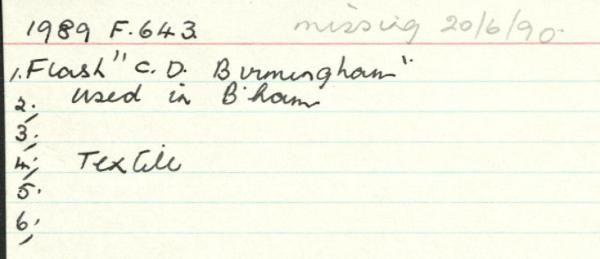 1989 F.643 missing 20/6/90
1. Flash "C.D. Birmingham"
2. used in B'ham
3.
4. Textile
5.
6.